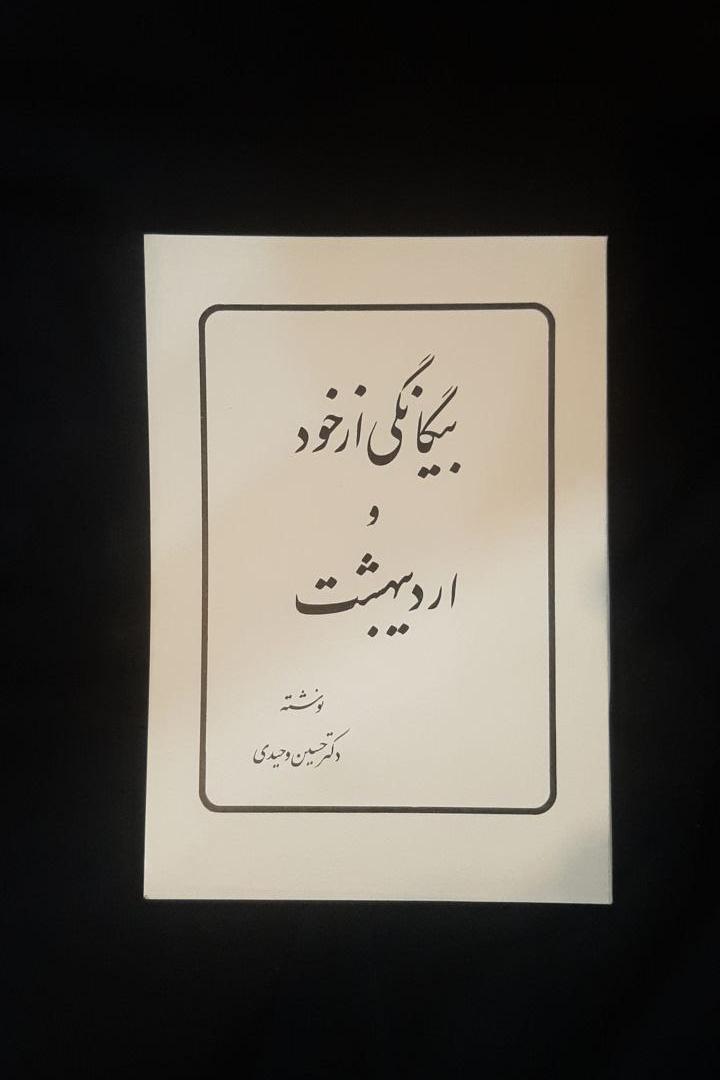 بیگانگی از خود
و
اردیبهشت
نوشته
دکتر حسین وحیدی